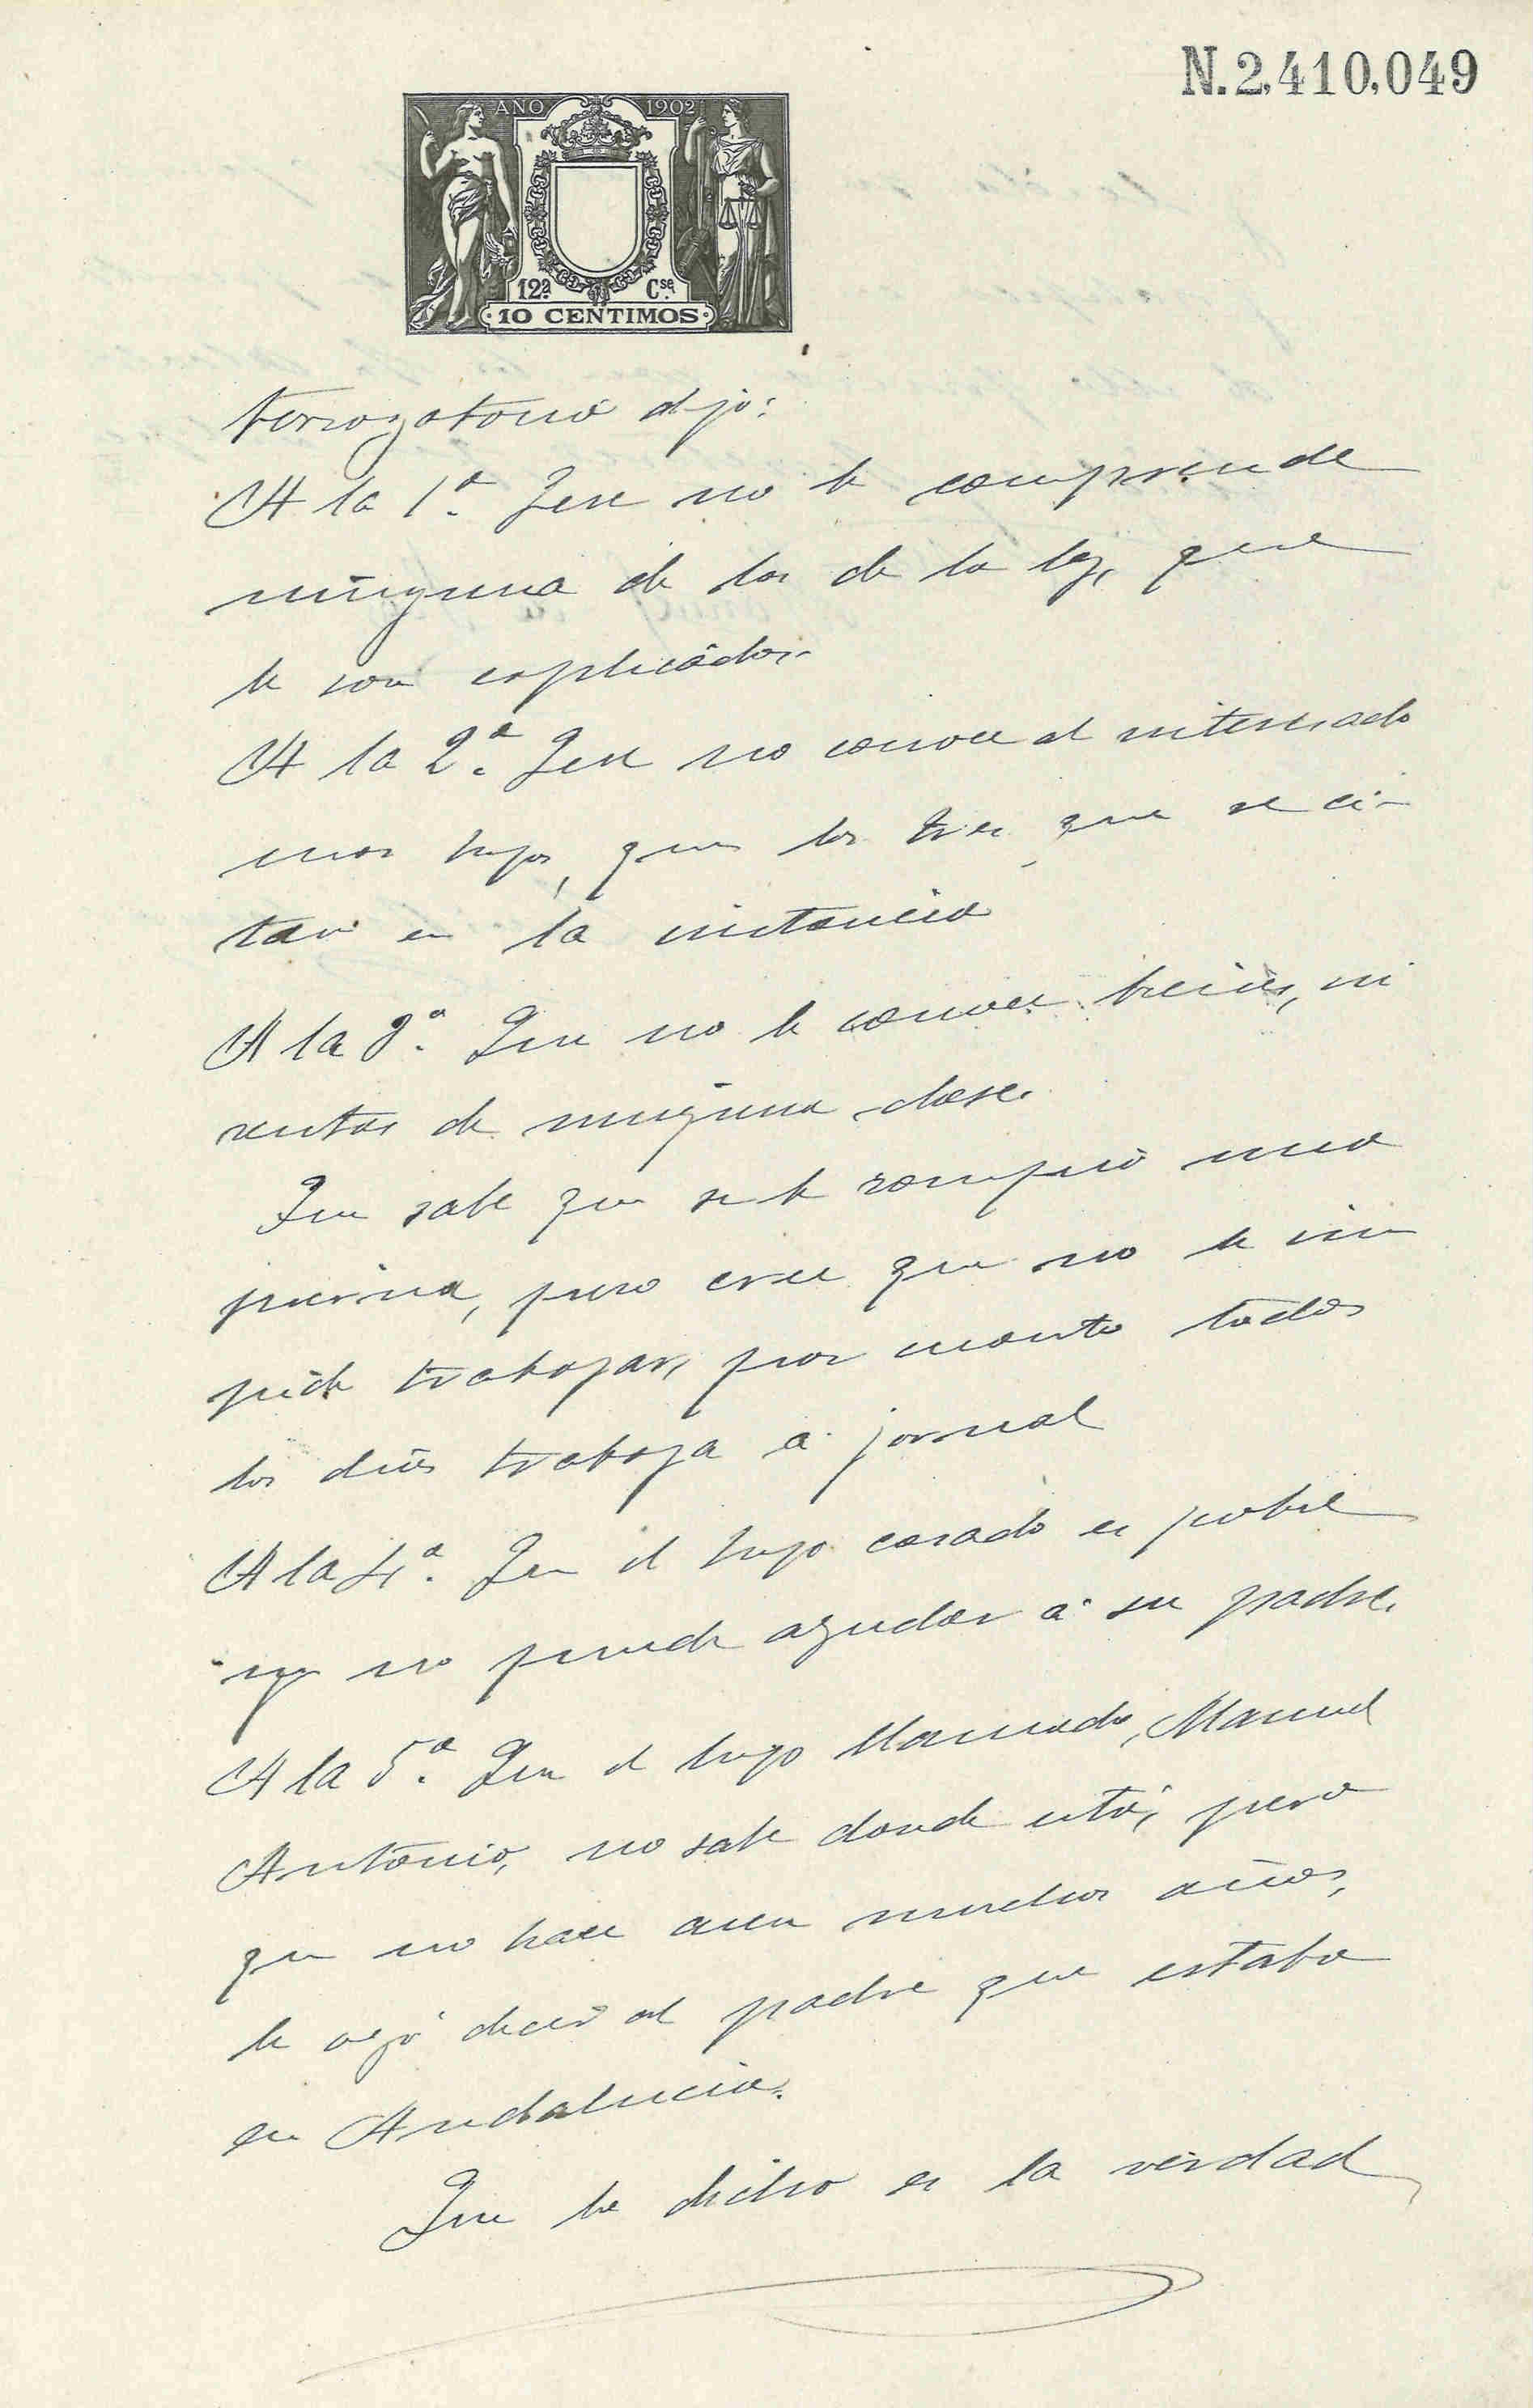 N. 2,410,049
AÑO 1902
12ª Cse
10 CENTIMOS
terrogatorio dijo:
A la 1ª. Que no le comprende
ninguna de las de la ley, que
le son explicadas.
A la 2ª. Que no conoce al interesado
mas hijos, que los tres que se ci-
tan en la instancia
A la 3ª. Que no le conoce bienes, ni
rentas de ninguna clase.
Que sabe que se le rompió una
pierna, pero cree que no le im
pide trabajar, por cuanto todos
los dias trabaja á jornal
A la 4ª. Que el hijo casado es pobre
y no puede ayudar á su padre.
A la 5ª. Que el hijo llamado, Manuel
Antonio, no sabe donde está, pero
que no hace aun muchos años,
le oyó decir al padre que estaba
en Andalucia.
Que lo dicho es la verdad